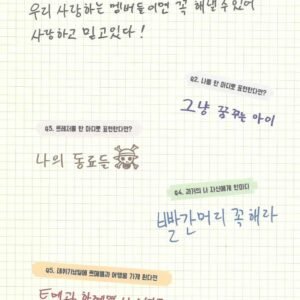 우리 사랑하는 멤버들이면 꼭 해낼 수 있어
사랑하고 믿고있다!
Q2. 나를 한 마디로 표현한다면?
그냥 꿈꾸는 아이
Q5. 트레저를 한 마디로 표현한다면?
나의 동료들
Q4. 과거의 나 자신에게 한마디
빨간머리 꼭 해라
Q5. 데뷔기념일에 트메들과 여행을 가게 된다면
트메과 함께면